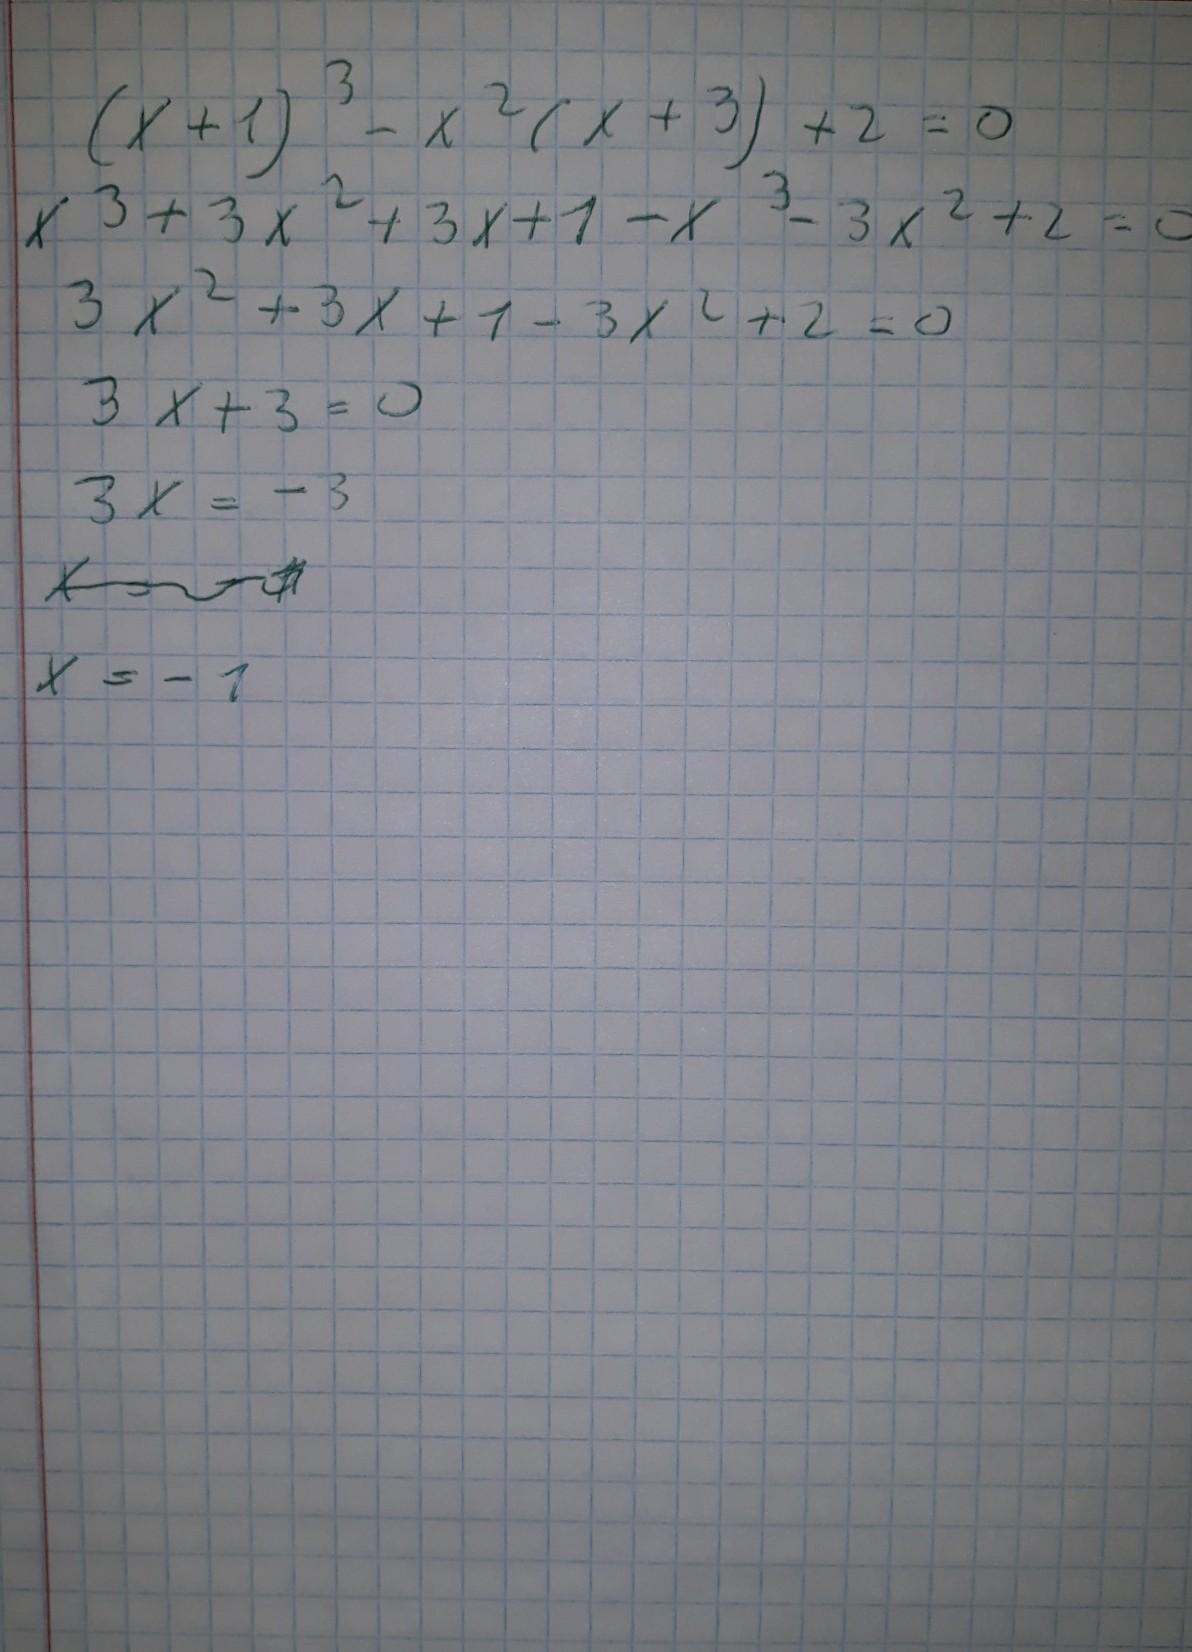 (x+1)³ - x²(x+3) + 2 = 0
x³ + 3x² + 3x + 1 - x³ - 3x² + 2 = 0
3x² + 3x + 1 - 3x² + 2 = 0
3x + 3 = 0
3x = -3
x = -1